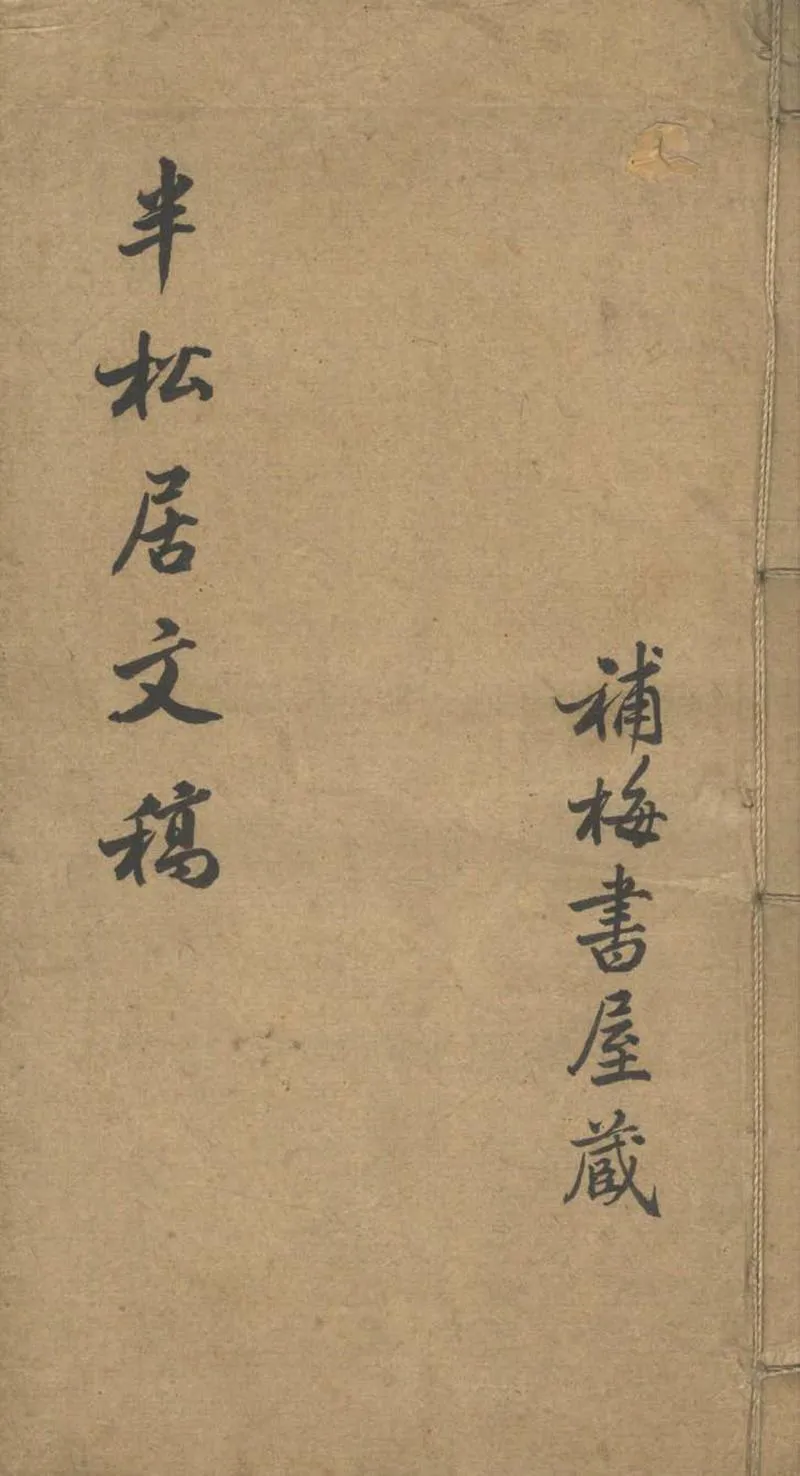 半松居文稿
補梅書屋蔵